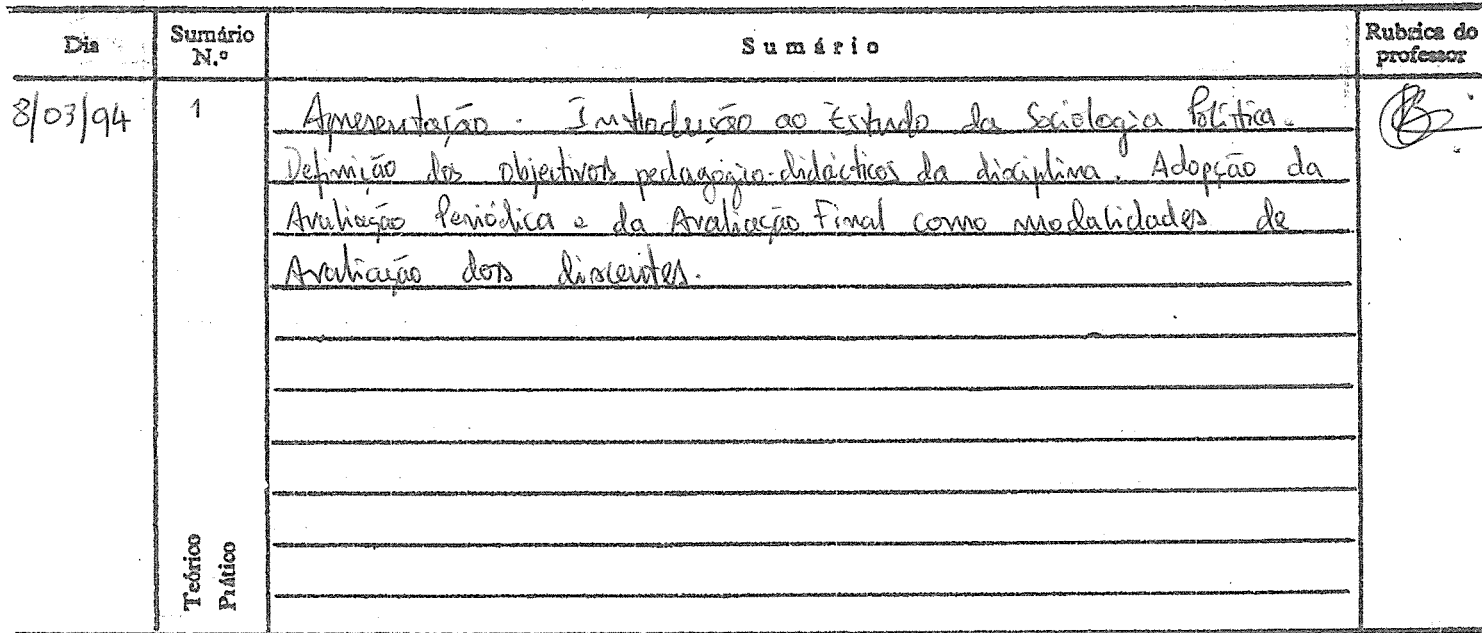 Dia Sumário N.º Sumário Rubrica do professor
8/03/94 1 Apresentação. Introdução ao Estudo da Sociologia Política.
Definição dos objectivos pedagógico-didácticos da disciplina. Adopção da
Avaliação Periódica e da Avaliação Final como modalidades de
Avaliação dos discentes.
Teórico
Prático